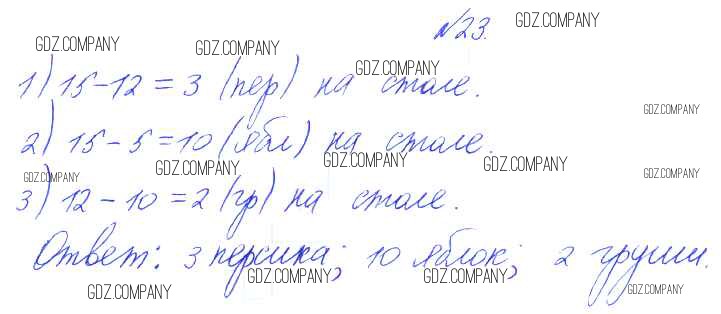 №23. GDZ.COMPANY
GDZ.COMPANY GDZ.COMPANY
GDZ.COMPANY
1) 15-12=3 (пер) на столе.
GDZ.COMPANY
2) 15-5=10 (ябл) на столе.
GDZ.COMPANY GDZ.COMPANY GDZ.COMPANY
GDZ.COMPANY GDZ.COMPANY
3) 12-10=2 (гр) на столе.
Ответ: 3 персика; 10 яблок; 2 груши.
GDZ.COMPANY GDZ.COMPANY
GDZ.COMPANY GDZ.COMPANY